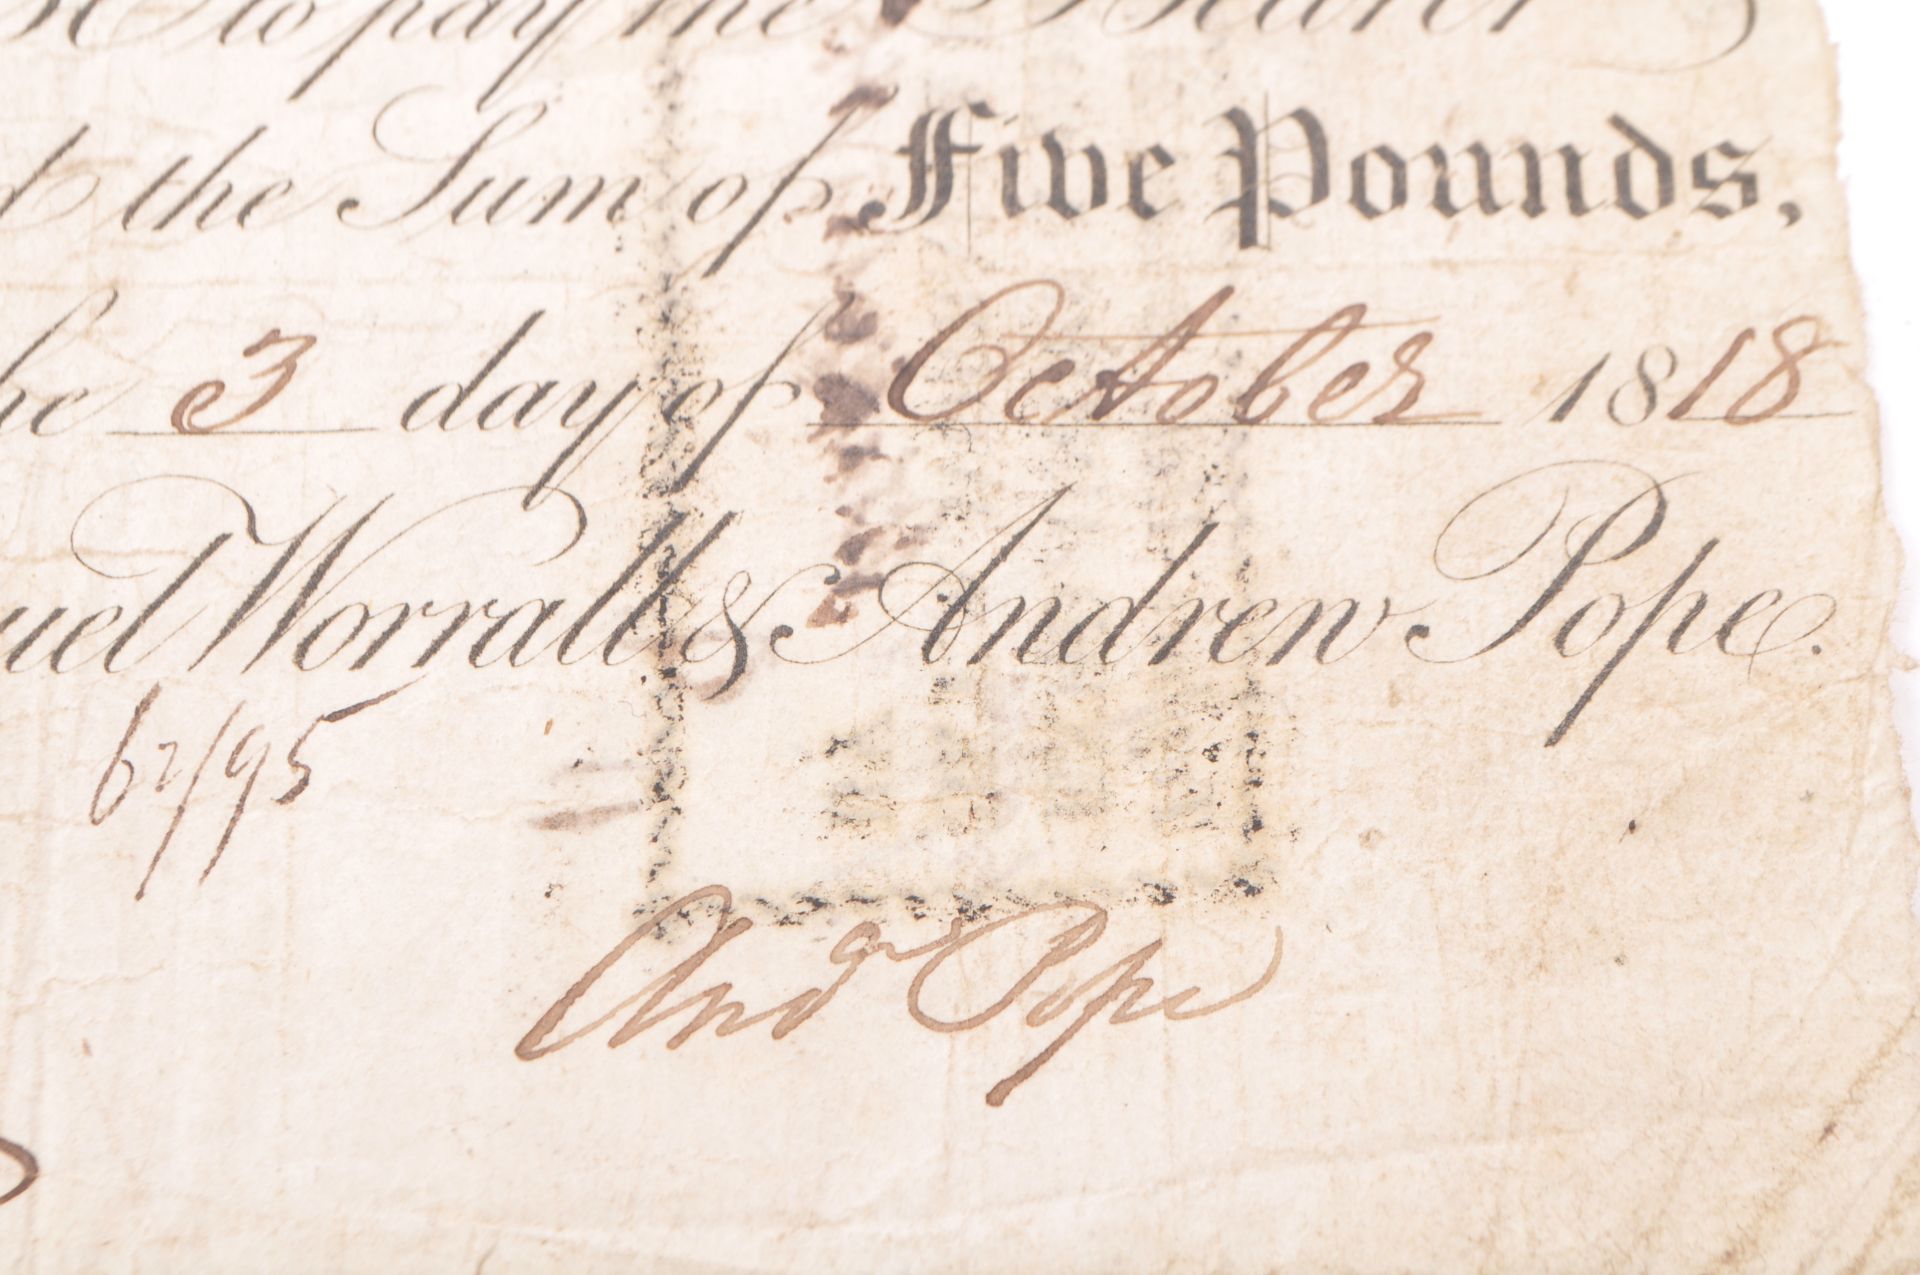 to pay the Bearer
the Sum of Five Pounds,
he 3 day of October 1818
uel Worrall & Andrew Pope.
62/95
Andw Pope